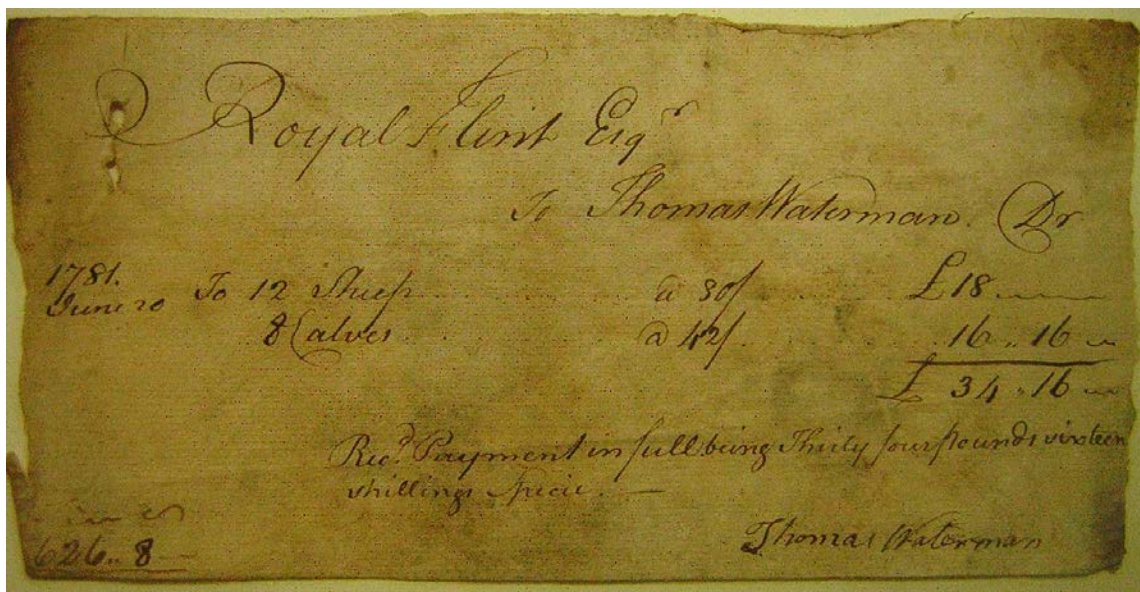 Royal Flint Esqr
To Thomas Waterman Dr
1781.
June 20 To 12 Sheep a 30/ £18
8 Calves a 42/ 16 .. 16
£ 34 .. 16
Recd. Payment in full being Thirty four pounds sixteen
shillings Specie. —
Thomas Waterman
626 .. 8